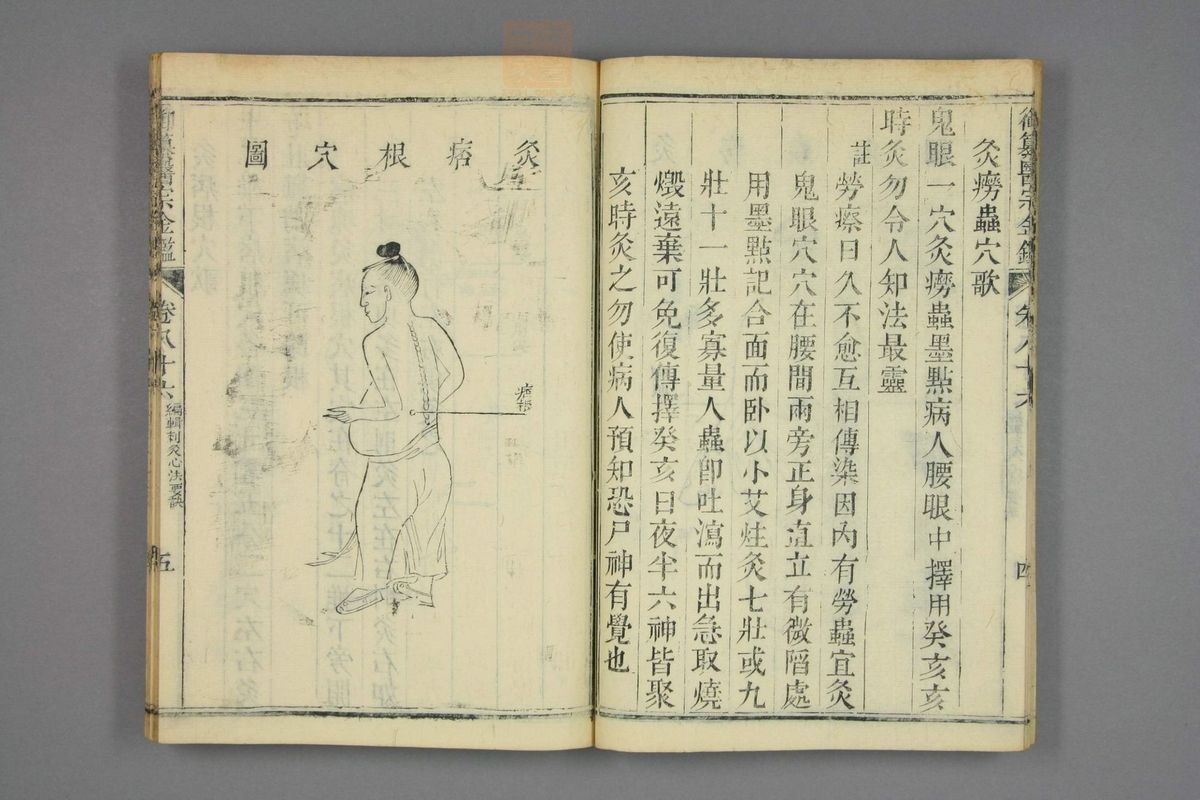 灸癆蟲穴歌
鬼眼一穴灸癆蟲墨點病人腰眼中擇用癸亥亥
時灸勿令人知法最靈
註
勞瘵日久不愈互相傳染因內有勞蟲宜灸
鬼眼穴穴在腰間兩旁正身直立有微陷處
用墨點記合面而卧以小艾炷灸七壯或九
壯十一壯多寡量人蟲卽吐瀉而出急取燒
燬遠棄可免復傳擇癸亥日夜半六神皆聚
亥時灸之勿使病人預知恐尸神有覺也
灸痞根穴圖
痞根
御纂醫宗金鑑
卷八十六
編輯刺灸心法要訣
五
御纂醫宗金鑑
卷八十六
四